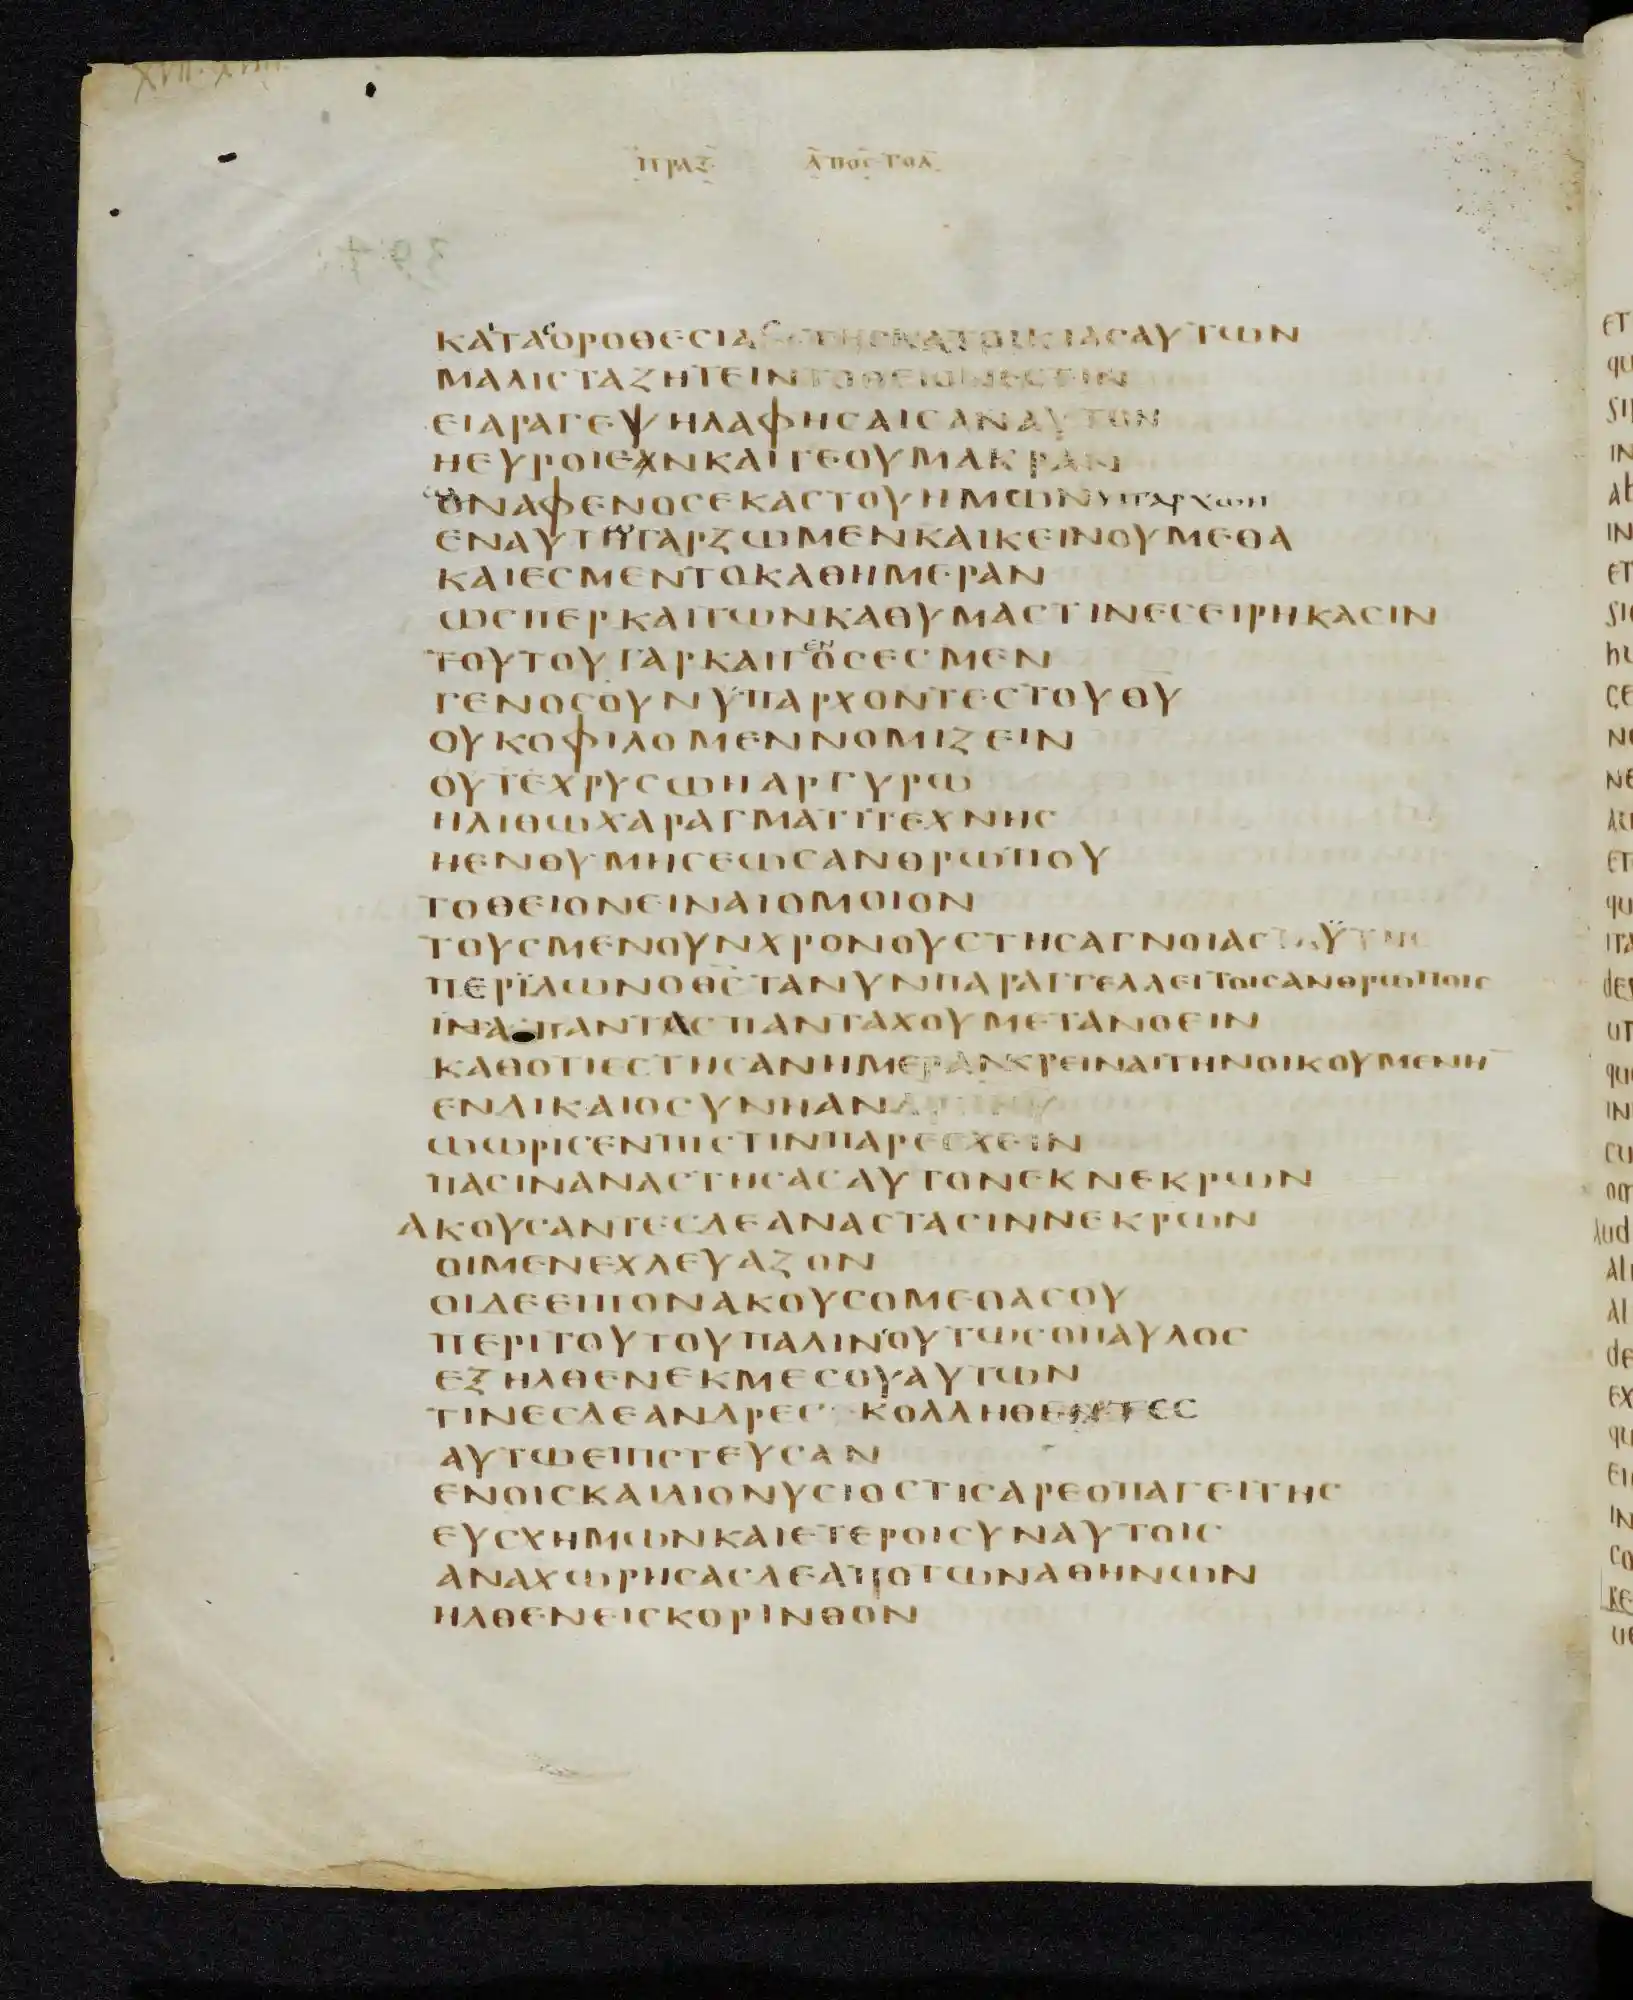 XVII·XVIII
ΠΡΑΞ ΑΠΟΣΤΟΛ
ΚΑΤΑΟΡΟΘΕϹΙΑϹΤΗϹΚΑΤΟΙΚΙΑϹΑΥΤΩΝ
ΜΑΛΙϹΤΑΖΗΤΕΙΝΤΟΘΕΙΟΝΕϹΤΙΝ
ΕΙΑΡΑΓΕΨΗΛΑΦΗϹΑΙϹΑΝΑΥΤΟΝ
ΗΕΥΡΟΙΕΑΝΚΑΙΓΕΟΥΜΑΚΡΑΝ
ΟΝΑΦΕΝΟϹΕΚΑϹΤΟΥΗΜΩΝΥΠΑΡΧΩΝ
ΕΝΑΥΤΗΓΑΡΖΩΜΕΝΚΑΙΚΕΙΝΟΥΜΕΘΑ
ΚΑΙΕϹΜΕΝΤΟΚΑΘΗΜΕΡΑΝ
ΩϹΠΕΡΚΑΙΤΩΝΚΑΘΥΜΑϹΤΙΝΕϹΕΙΡΗΚΑϹΙΝ
ΤΟΥΤΟΥΓΑΡΚΑΙΓΕΝΟϹΕϹΜΕΝ
ΓΕΝΟϹΟΥΝΥΠΑΡΧΟΝΤΕϹΤΟΥΘΥ
ΟΥΚΟΦΙΛΟΜΕΝΝΟΜΙΖΕΙΝ
ΟΥΤΕΧΡΥϹΩΗΑΡΓΥΡΩ
ΗΛΙΘΩΧΑΡΑΓΜΑΤΙΤΕΧΝΗϹ
ΗΕΝΘΥΜΗϹΕΩϹΑΝΘΡΩΠΟΥ
ΤΟΘΕΙΟΝΕΙΝΑΙΟΜΟΙΟΝ
ΤΟΥϹΜΕΝΟΥΝΧΡΟΝΟΥϹΤΗϹΑΓΝΟΙΑϹΤΑΥΤΗϹ
ΠΕΡΙΔΩΝΟΘϹΤΑΝΥΝΠΑΡΑΓΓΕΛΛΕΙΤΟΙϹΑΝΘΡΩΠΟΙϹ
ΙΝΑΠΑΝΤΑϹΠΑΝΤΑΧΟΥΜΕΤΑΝΟΕΙΝ
ΚΑΘΟΤΙΕϹΤΗϹΑΝΗΜΕΡΑΝΚΡΕΙΝΑΙΤΗΝΟΙΚΟΥΜΕΝΗ̄
ΕΝΔΙΚΑΙΟϹΥΝΗΑΝΔΡΙΙΗΥ
ΩΩΡΙϹΕΝΠΙϹΤΙΝΠΑΡΕϹΧΕΙΝ
ΠΑϹΙΝΑΝΑϹΤΗϹΑϹΑΥΤΟΝΕΚΝΕΚΡΩΝ
ΑΚΟΥϹΑΝΤΕϹΔΕΑΝΑϹΤΑϹΙΝΝΕΚΡΩΝ
ΟΙΜΕΝΕΧΛΕΥΑΖΟΝ
ΟΙΔΕΕΙΠΟΝΑΚΟΥϹΟΜΕΘΑϹΟΥ
ΠΕΡΙΤΟΥΤΟΥΠΑΛΙΝΟΥΤΩϹΟΠΑΥΛΟϹ
ΕΞΗΛΘΕΝΕΚΜΕϹΟΥΑΥΤΩΝ
ΤΙΝΕϹΔΕΑΝΔΡΕϹ ΚΟΛΛΗΘΕΝΤΕϹ
ΑΥΤΩΕΠΙϹΤΕΥϹΑΝ
ΕΝΟΙϹΚΑΙΔΙΟΝΥϹΙΟϹΤΙϹΑΡΕΟΠΑΓΕΙΤΗϹ
ΕΥϹΧΗΜΩΝΚΑΙΕΤΕΡΟΙϹΥΝΑΥΤΟΙϹ
ΑΝΑΧΩΡΗϹΑϹΔΕΑΠΟΤΩΝΑΘΗΝΩΝ
ΗΛΘΕΝΕΙϹΚΟΡΙΝΘΟΝ